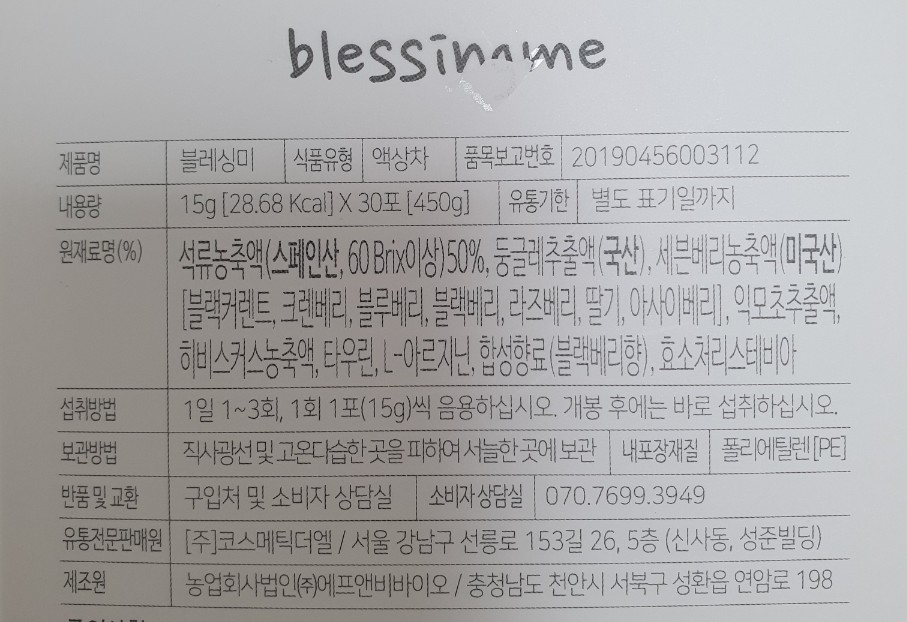 blessing me
제품명 블레싱미 식품유형 액상차 품목보고번호 20190456003112
내용량 15g [28.68 Kcal] X 30포 [450g] 유통기한 별도 표기일까지
원재료명(%) 석류농축액(스페인산, 60 Brix이상)50%, 둥글레추출액(국산), 세븐베리농축액(미국산)
[블랙커렌트, 크렌베리, 블루베리, 블랙베리, 라즈베리, 딸기, 아사이베리], 익모초추출액,
히비스커스농축액, 타우린, L-아르지닌, 합성향료(블랙베리향), 효소처리스테비아
섭취방법 1일 1~3회, 1회 1포(15g)씩 음용하십시오. 개봉 후에는 바로 섭취하십시오.
보관방법 직사광선 및 고온다습한 곳을 피하여 서늘한 곳에 보관 내포장재질 폴리에틸렌[PE]
반품 및 교환 구입처 및 소비자 상담실 소비자 상담실 070.7699.3949
유통전문판매원 [주]코스메틱더엘 / 서울 강남구 선릉로 153길 26, 5층 (신사동, 성준빌딩)
제조원 농업회사법인㈜에프앤비바이오 / 충청남도 천안시 서북구 성환읍 연암로 198